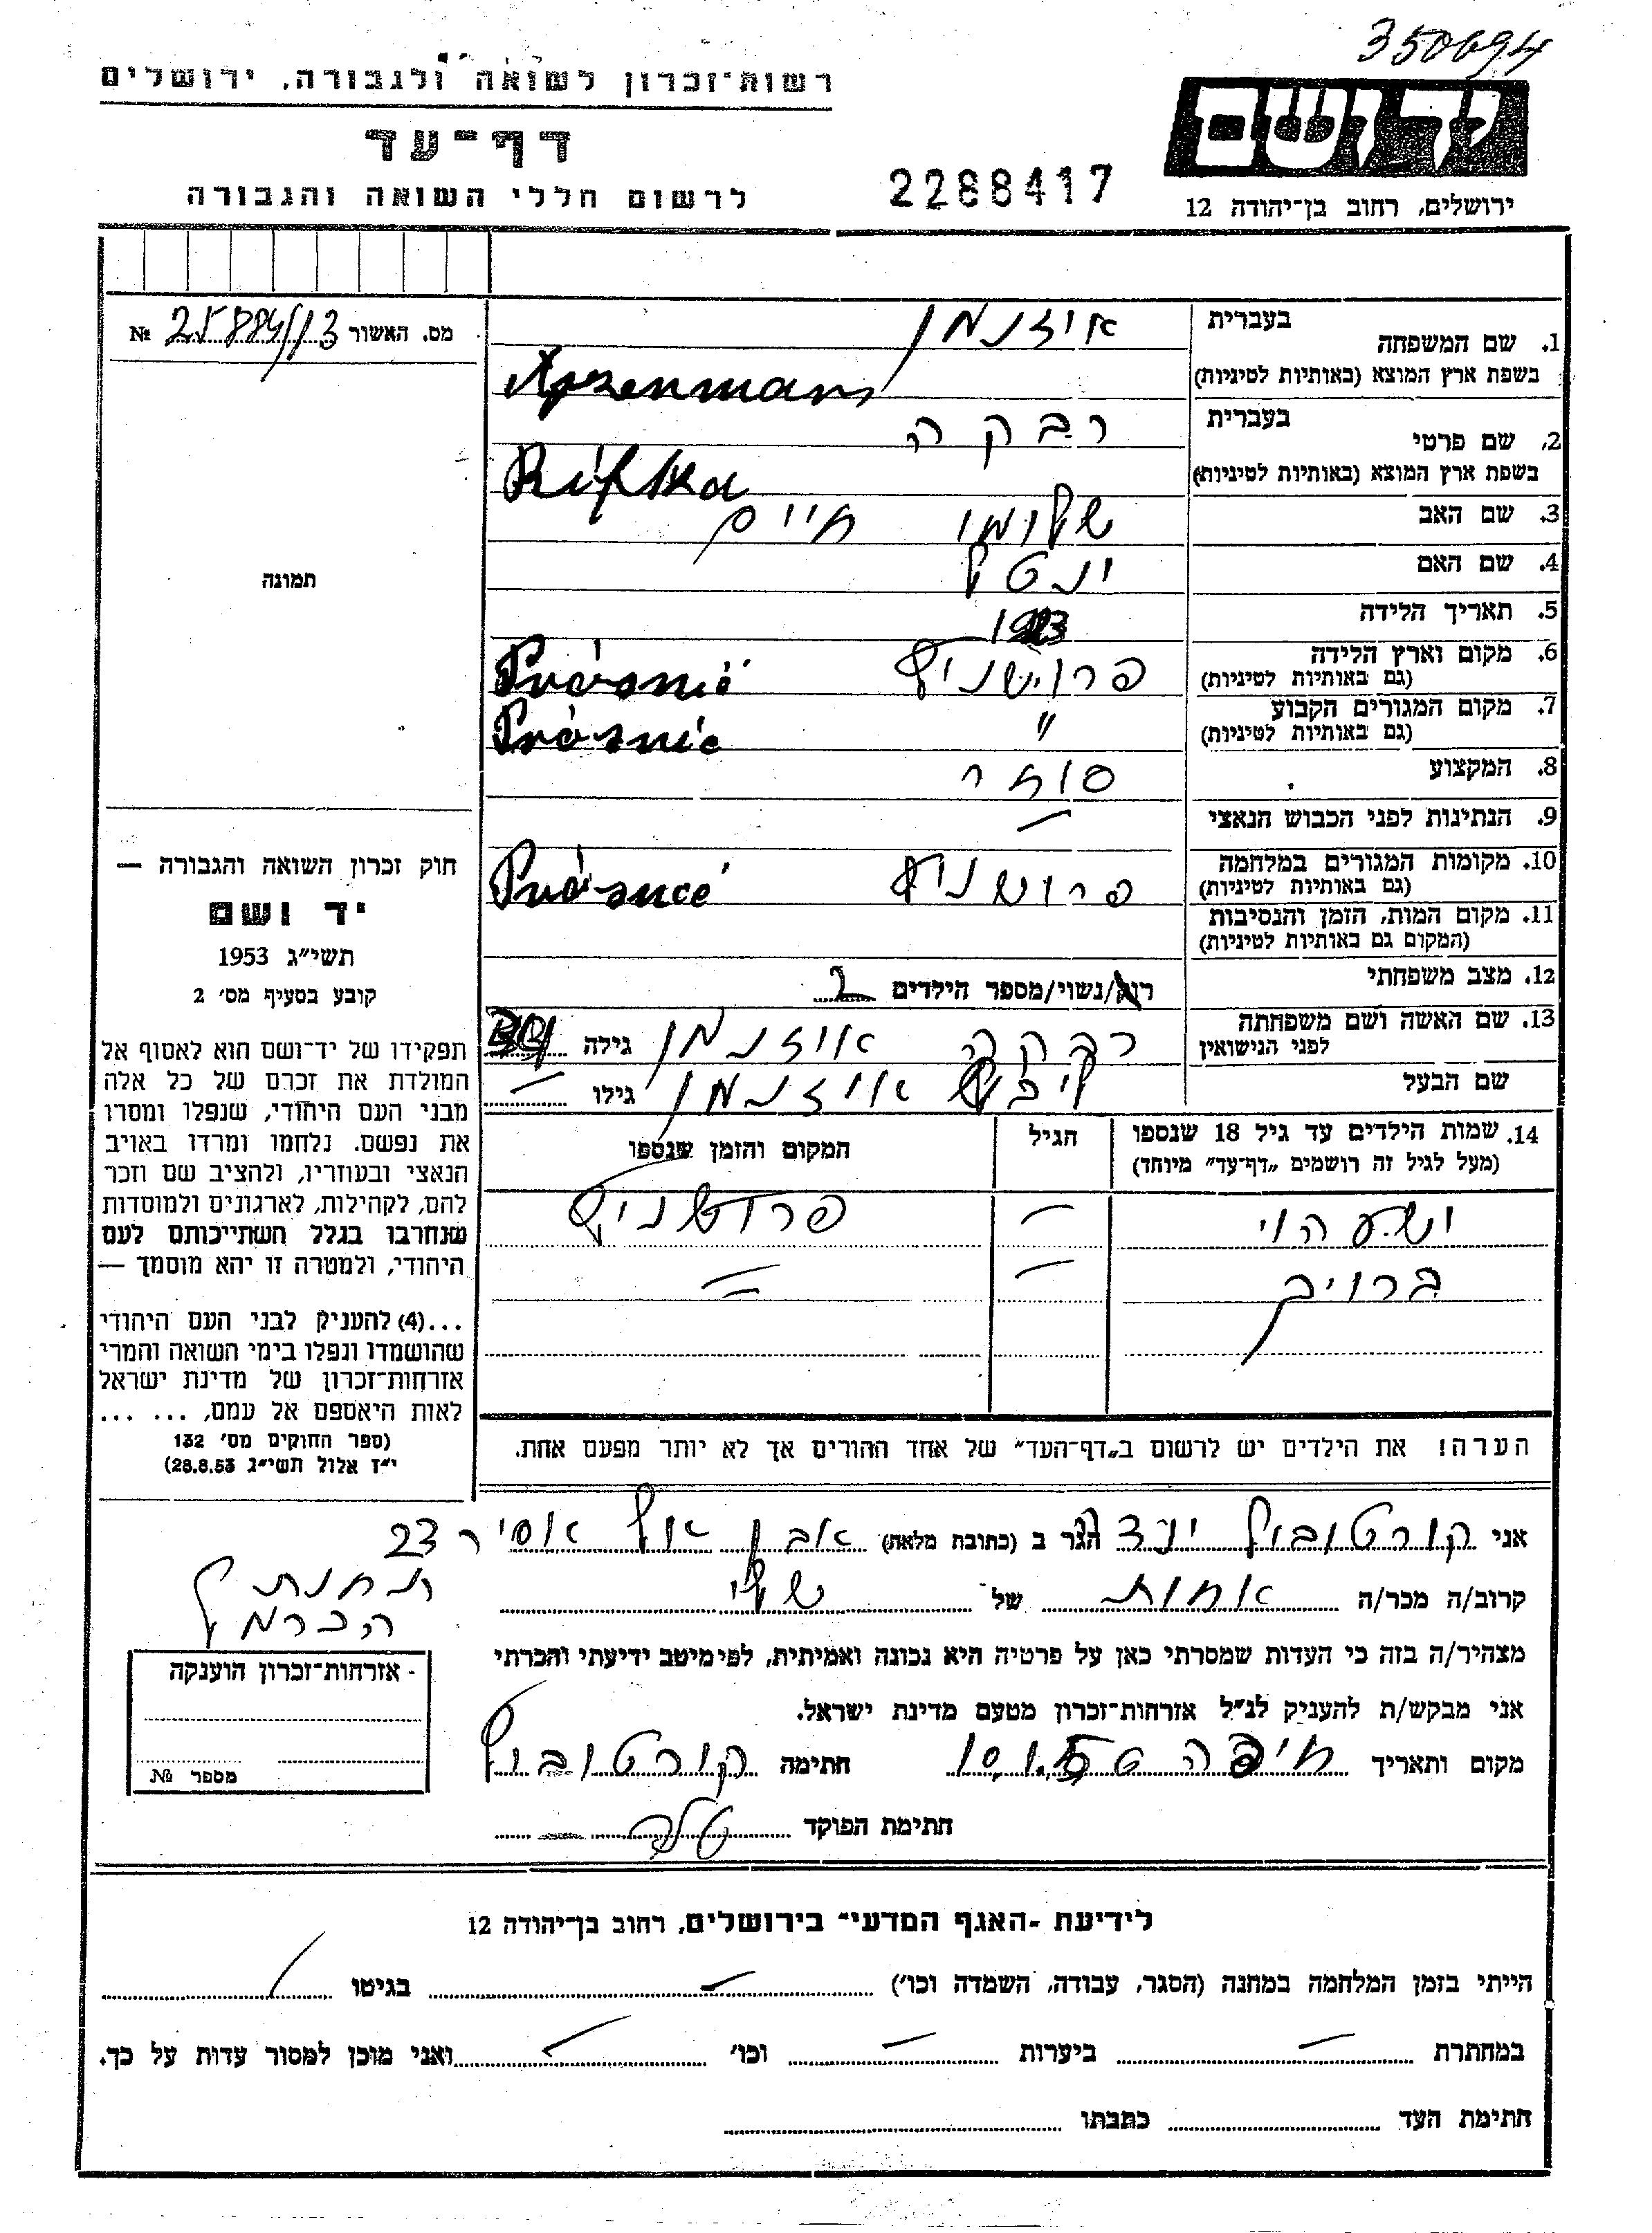 350694
רשות־זכרון לשואה ולגבורה, ירושלים
דף־עד
לרשום חללי השואה והגבורה
2288417
יד ושם
ירושלים, רחוב בן־יהודה 12
מס. האשור 25884/13 №
תמונה
חוק זכרון השואה והגבורה —
יד ושם
תשי״ג 1953
קובע בסעיף מס׳ 2
תפקידו של יד־ושם הוא לאסוף אל
המולדת את זכרם של כל אלה
מבני העם היהודי, שנפלו ומסרו
את נפשם. נלחמו ומרדו באויב
הנאצי ובעוזריו, ולהציב שם וזכר
להם, לקהילות, לארגונים ולמוסדות
שנחרבו בגלל השתייכותם לעם
היהודי, ולמטרה זו יהא מוסמך —
...(4) להעניק לבני העם היהודי
שהושמדו ונפלו בימי השואה והמרי
אזרחות־זכרון של מדינת ישראל
לאות היאספם אל עמם, ... ...
(ספר החוקים מס׳ 132
י״ז אלול תשי״ג 28.8.53)
1. שם המשפחה בעברית איזנמן
בשפת ארץ המוצא (באותיות לטיניות) Ajzenman
2. שם פרטי בעברית רבקה
בשפת ארץ המוצא (באותיות לטיניות) Rifka
3. שם האב שלומו חיים
4. שם האם ינטל
5. תאריך הלידה
6. מקום וארץ הלידה
(גם באותיות לטיניות)
7. מקום המגורים הקבוע "
(גם באותיות לטיניות)
8. המקצוע סוחר
9. הנתינות לפני הכבוש הנאצי —
10. מקומות המגורים במלחמה פרושניץ
(גם באותיות לטיניות)
11. מקום המות, הזמן והנסיבות
(המקום גם באותיות לטיניות)
12. מצב משפחתי רוק/נשוי/מספר הילדים 2
13. שם האשה ושם משפחתה רבקה איזנמן גילה
לפני הנישואין
שם הבעל ליבש איזנמן גילו —
14. שמות הילדים עד גיל 18 שנספו הגיל המקום והזמן שנספו
(מעל לגיל זה רושמים „דף־עד״ מיוחד)
ישעהוי — פרושניץ
ברויך — =
הערה! את הילדים יש לרשום ב„דף־העד״ של אחד ההורים אך לא יותר מפעם אחת.
אני קורטוביץ הגר ב (כתובת מלאה) 23
תחנת
הכרמל
קרוב/ה מכר/ה אחות של שלי
מצהיר/ה בזה כי העדות שמסרתי כאן על פרטיה היא נכונה ואמיתית, לפי מיטב ידיעתי והכרתי
אני מבקש/ת להעניק לנ״ל אזרחות־זכרון מטעם מדינת ישראל.
מקום ותאריך חיפה חתימה קורטוביץ
חתימת הפוקד
- אזרחות־זכרון הוענקה
מספר №
לידיעת -האגף המדעי־ בירושלים, רחוב בן־יהודה 12
הייתי בזמן המלחמה במחנה (הסגר, עבודה, השמדה וכו׳) — בגיטו
במחתרת — ביערות — וכו׳ — ואני מוכן למסור עדות על כך.
חתימת העד כתבתו